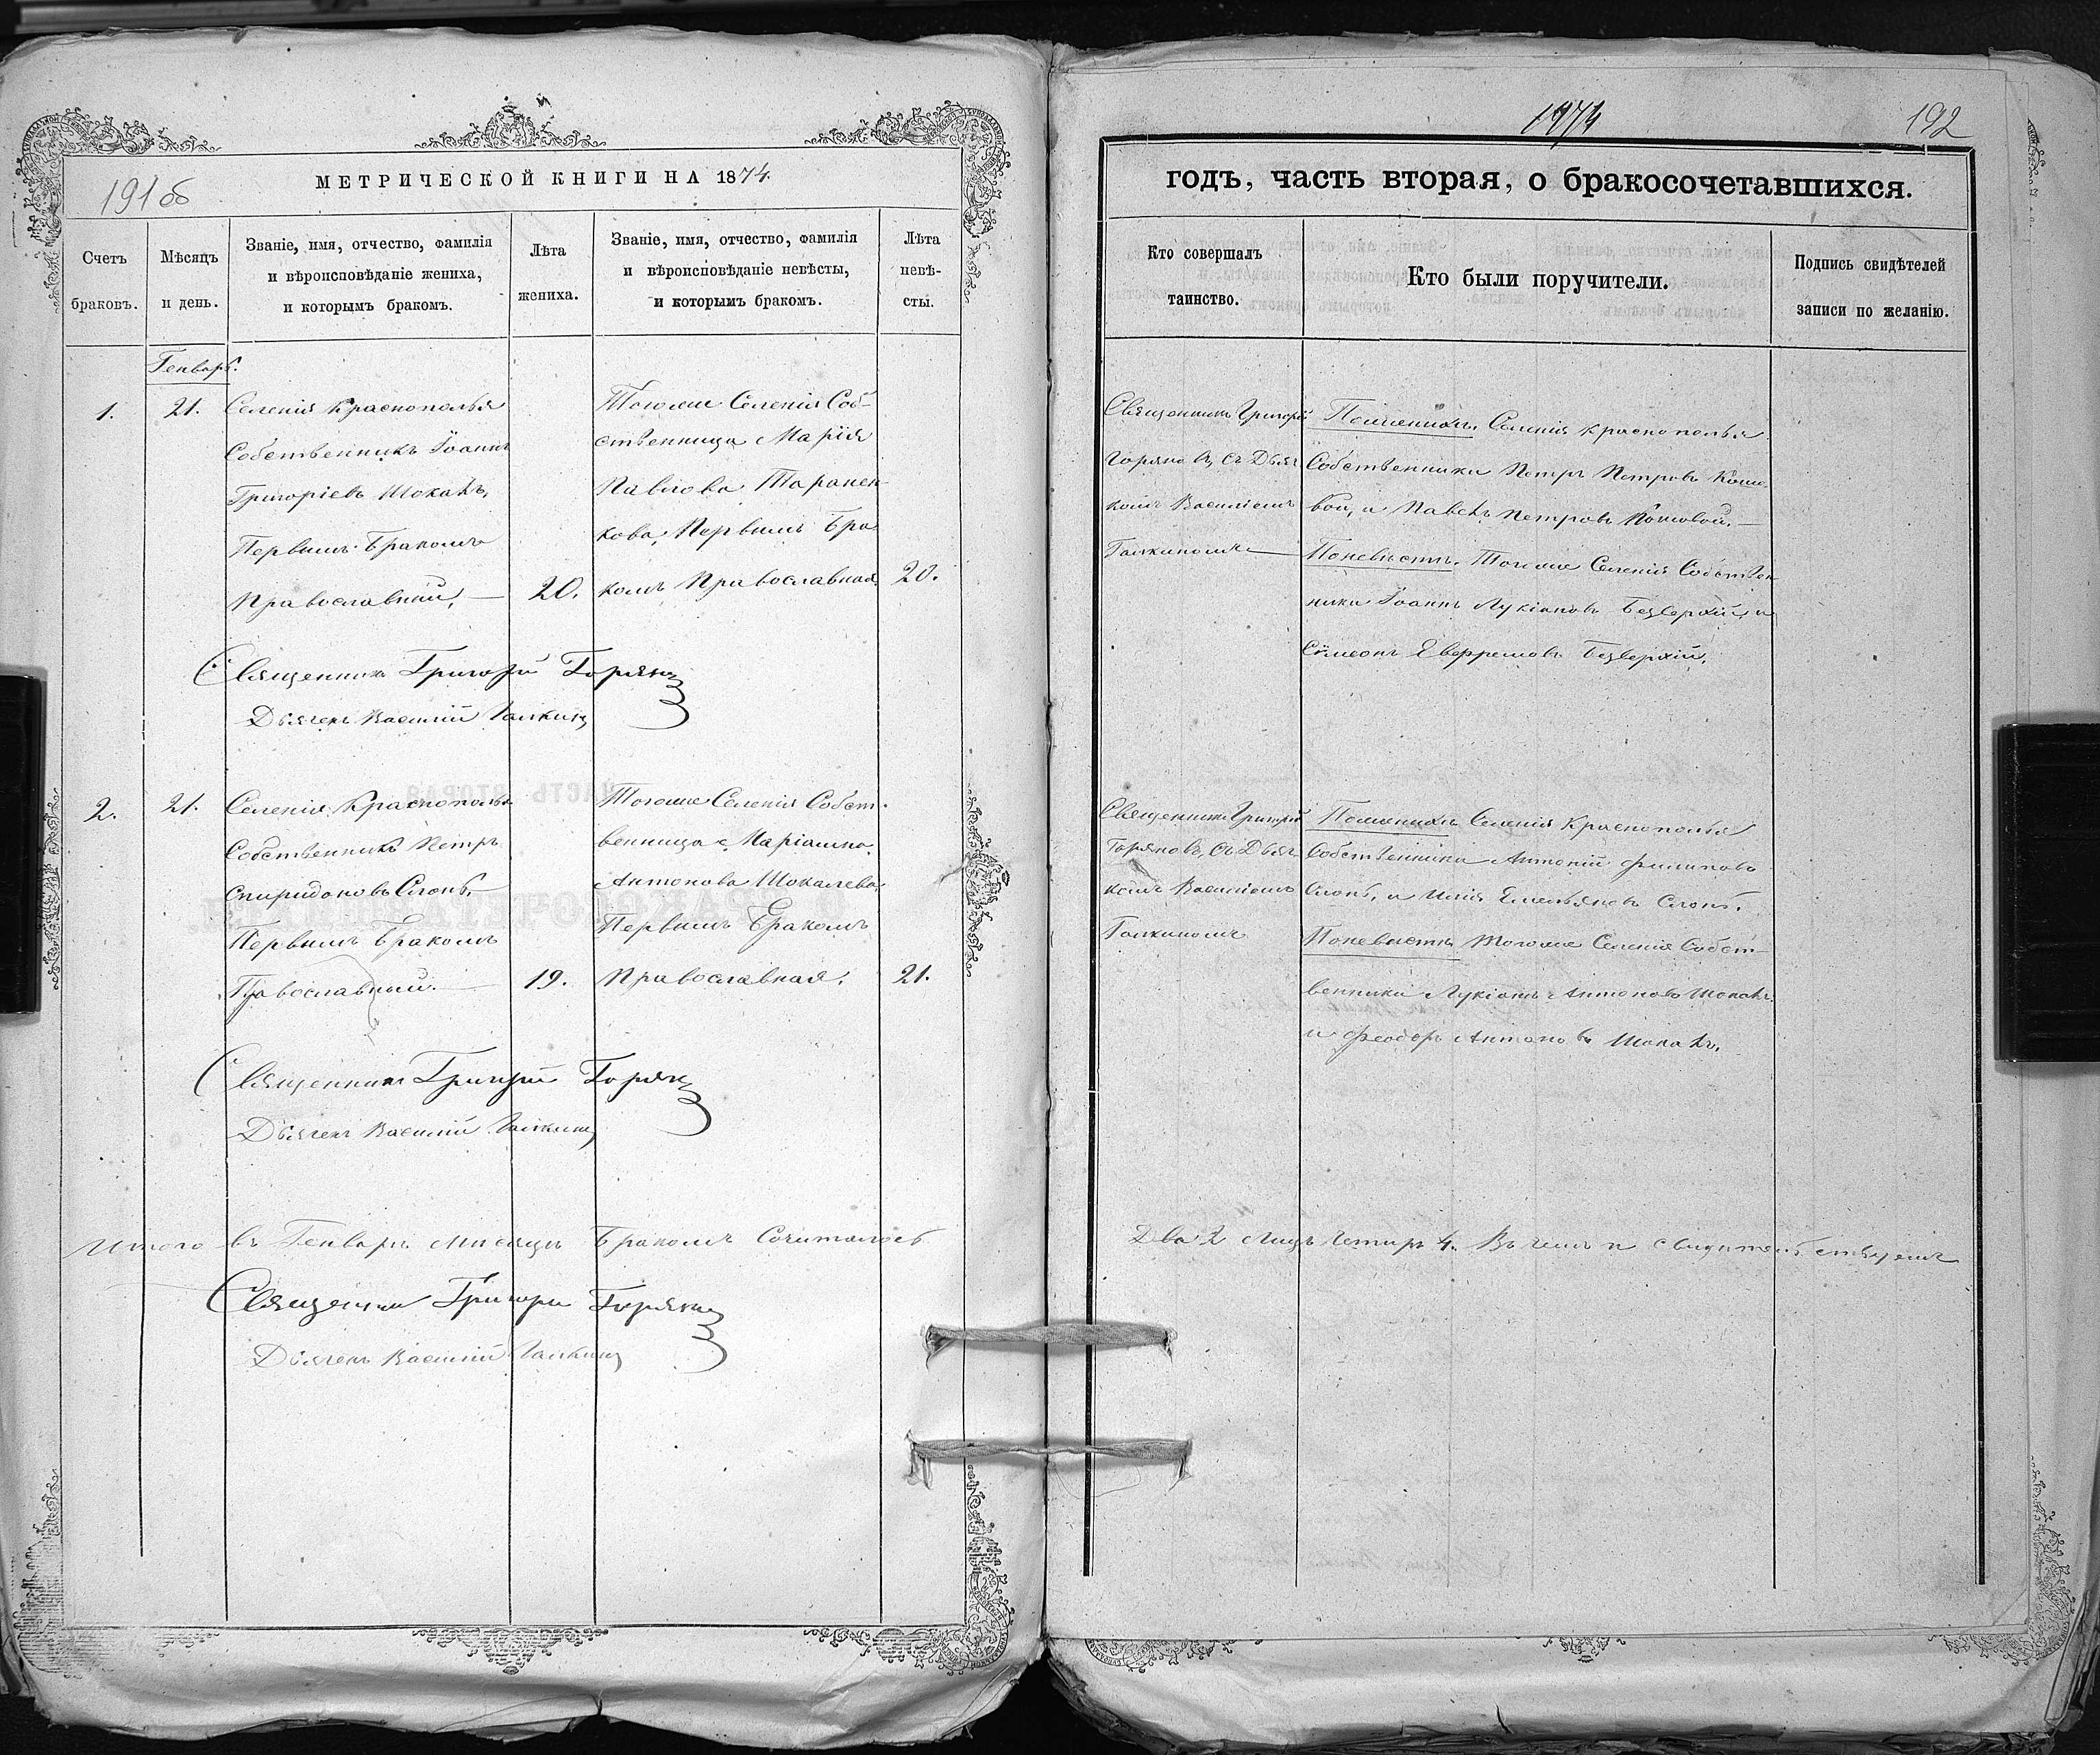 191об
МЕТРИЧЕСКОЙ КНИГИ НА 1874.
Счетъ
браковъ.
Мѣсяцъ
и день.
Званіе, имя, отчество, фамилія
и вѣроисповѣданіе жениха,
и которымъ бракомъ.
Лѣта
жениха.
Званіе, имя, отчество, фамилія
и вѣроисповѣданіе невѣсты,
и которымъ бракомъ.
Лѣта
невѣ-
сты.
Генварь.
1.
21.
Селенія Краснополья
Собственникъ Іоаннъ
Григоріевъ Шокатъ,
Первымъ Бракомъ
Православный, —
20.
Тогоже Селенія Соб-
ственница Марія
Павлова Таранен-
кова, Первымъ Бра
комъ Православная.
20.
Священникъ Григорій Горянов
Дьячекъ Василій Галкинъ
2.
21.
Селенія Краснополья
Собственникъ Петръ
Спиридоновъ Слонь,
Первымъ Бракомъ
Православный. —
19.
Тогоже Селенія Собст-
венница Маріамна
Антонова Шокалева
Первымъ Бракомъ
Православная.
21.
Священникъ Григорій Горянов
Дьячекъ Василій Галкинъ
Итого въ Генварѣ Мѣсяцѣ Бракомъ Сочиталось
Священник Григори Горянов
Дьячекъ Василій Галкинъ
1874
192
годъ, часть вторая, о бракосочетавшихся.
Кто совершалъ
таинство.
Кто были поручители.
Подпись свидѣтелей
записи по желанію.
Священникъ Григорій
Горяновъ, съ Дьяч
комъ Василіемъ
Галкиномъ —
Поженихѣ. Селенія Краснополья
Собственники Петръ Петровъ Коше
вой, и Павелъ Петровъ Кошевой. —
Поневѣстѣ. Тогоже Селенія Собствен
ники Іоаннъ Лукіановъ Безверхій, и
Симеонъ Евфремовъ Безверхій.
Священникъ Григорій
Горяновъ, съ Дьяч
комъ Василіемъ
Галкиномъ
Поженихѣ Селенія Краснополья
Собственники Антоній Филиповъ
Слонь, и Илія Емельяновъ Слонь.
Поневѣстѣ Тогоже Селенія Собст-
венники Лукіанъ Антоновъ Шокатъ
и Феодоръ Антоновъ Шокатъ.
Два 2 Лицъ Четыре 4. Въ чемъ и свидѣтельствуемъ